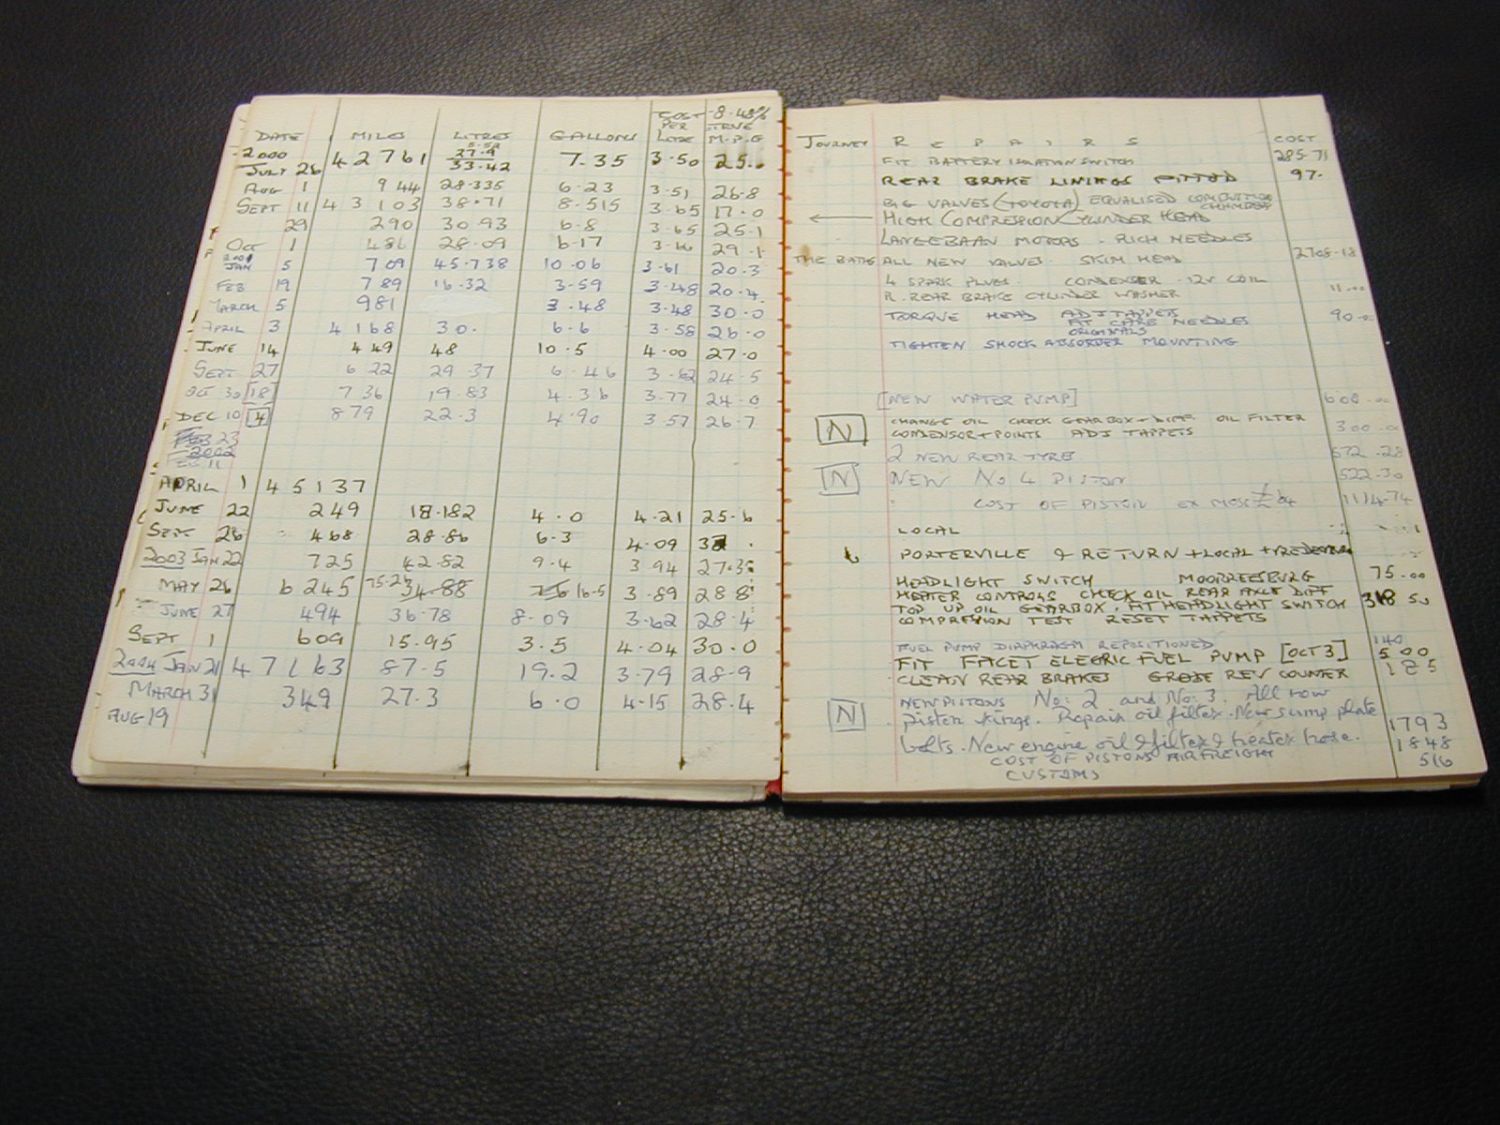 DATE MILES LITRES GALLONS COST PER LITRE -8.48% TRUE M.P.G
2000
JULY 26 42761 27.9 33.42 7.35 3.50 25.
AUG 1 944 28.335 6.23 3.51 26.8
SEPT 11 43103 38.71 8.515 3.65 17.0
29 290 30.93 6.8 3.65 25.1
OCT 1 486 28.09 6.17 3.16 29.1
2001
JAN 5 709 45.738 10.06 3.61 20.3
FEB 19 789 16.32 3.59 3.48 20.4
MARCH 5 981 3.48 3.48 30.0
APRIL 3 4168 30. 6.6 3.58 26.0
JUNE 14 449 48 10.5 4.00 27.0
SEPT 27 622 29.37 6.46 3.62 24.5
OCT 30 [18] 736 19.83 4.36 3.77 24.0
DEC 10 [4] 879 22.3 4.90 3.57 26.7
FEB 23
2002
APRIL 1 45137
JUNE 22 249 18.182 4.0 4.21 25.6
SEPT 26 468 28.86 6.3 4.09
2003 JAN 22 725 42.82 9.4 3.94 27.3
MAY 26 6245 34.88 16.5 3.89 28.8
JUNE 27 494 36.78 8.09 3.62 28.4
SEPT 1 609 15.95 3.5 4.04 30.0
2004 JAN 21 47163 87.5 19.2 3.79 28.9
MARCH 31 349 27.3 6.0 4.15 28.4
AUG 19
JOURNEY REPAIRS COST
FIT BATTERY ISOLATION SWITCH 285.71
REAR BRAKE LININGS FITTED 97.
BIG VALVES (TOYOTA) EQUALISED COMBUSTION CHAMBERS
HIGH COMPRESSION CYLINDER HEAD
LANGEBAAN MOTORS. RICH NEEDLES
THE BATHS ALL NEW VALVES. SKIM HEAD 2708.18
4 SPARK PLUGS. CONDENSER. 12V COIL
R. REAR BRAKE CYLINDER WASHER 11.00
TORQUE HEAD ADJ TAPPETS 90.00
FIT CARB NEEDLES
ORIGINALS
TIGHTEN SHOCK ABSORBER MOUNTING
[NEW WATER PUMP] 608.00
N CHANGE OIL CHECK GEARBOX + DIFF. OIL FILTER
CONDENSOR + POINTS ADJ TAPPETS 300.00
2 NEW REAR TYRES 572.28
N NEW No 4 PISTON 522.30
COST OF PISTON EX MOSS £64 1114.74
LOCAL
PORTERVILLE & RETURN + LOCAL +
HEADLIGHT SWITCH MOORREESBURG 75.00
HEATER CONTROLS CHECK OIL REAR AXLE DIFF
TOP UP OIL GEARBOX. FIT HEADLIGHT SWITCH 318.50
COMPRESSION TEST RESET TAPPETS
FUEL PUMP DIAPHRAGM REPOSITIONED 140
FIT FACET ELECTRIC FUEL PUMP [OCT 3] 500
CLEAN REAR BRAKES GREASE REV COUNTER 125
N NEW PISTONS No: 2 and No: 3. All new
piston rings. Repair oil filter. New sump plate 1793
bolts. New engine oil & filter & heater hose. 1848
COST OF PISTONS AIRFREIGHT 516
CUSTOMS